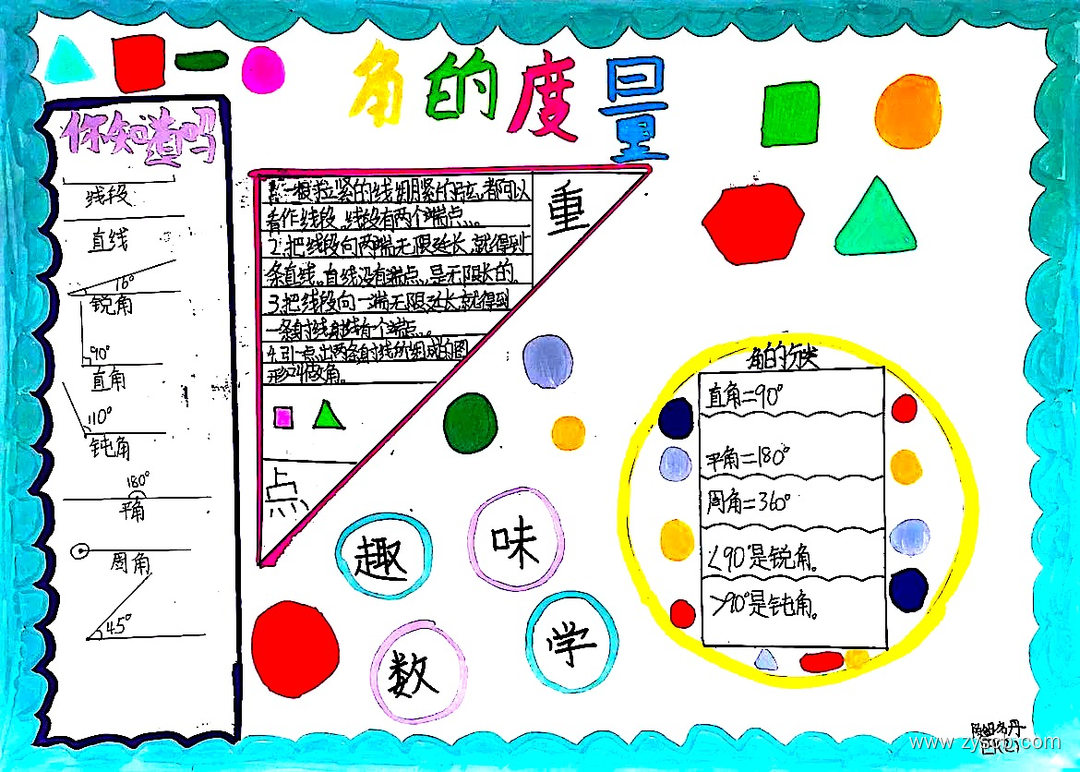 角的度量
你知道吗
线段
直线
16°
锐角
90°
直角
110°
钝角
180°
平角
周角
45°
重点
1.一根拉紧的线,绷紧的弓弦,都可以
看作线段。线段有两个端点。
2.把线段向两端无限延长,就得到
条直线。直线没有端点,是无限长的。
3.把线段向一端无限延长,就得到
一条射线,射线有一个端点。
4.引一点出两条射线所组成的图
形叫做角。
趣味
数学
角的分类
直角=90°
平角=180°
周角=360°
<90°是锐角。
>90°是钝角。